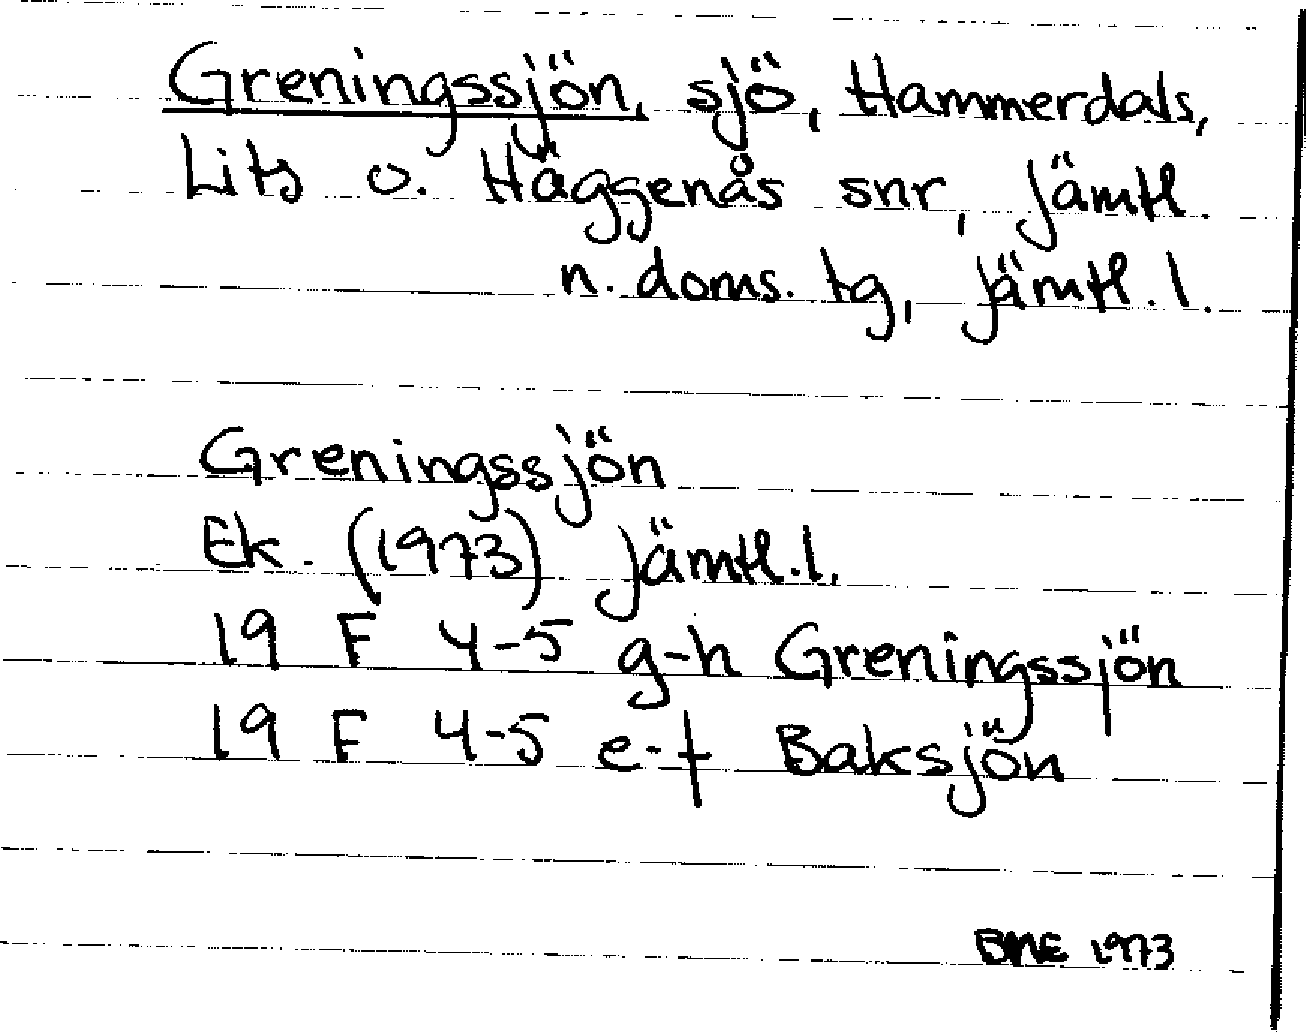 Greningssjön, sjö, Hammerdals,
Lits o. Häggenås snr, Jämtl.
n. doms. tg, Jämtl. l.
Greningssjön
Ek. (1973) Jämtl. l.
19 F 4-5 g-h Greningssjön
19 F 4-5 e-f Baksjön
BME 1973